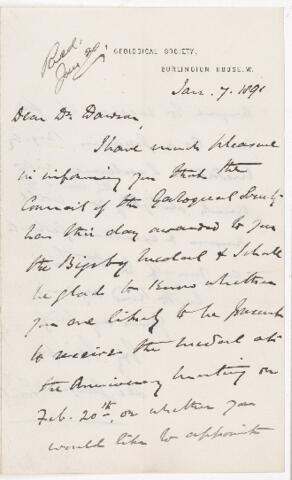 Recd.
Jan 20.
GEOLOGICAL SOCIETY,
BURLINGTON HOUSE. W.
Jan. 7. 1891
Dear Dr Dawson,
I have much pleasure
in informing you that the
Council of the Geological Society
has this day awarded to you
the Bigsby Medal & I shall
be glad to know whether
you are likely to be present
to receive the medal at
the Anniversary Meeting on
Feb. 20th or whether you
would like to appoint